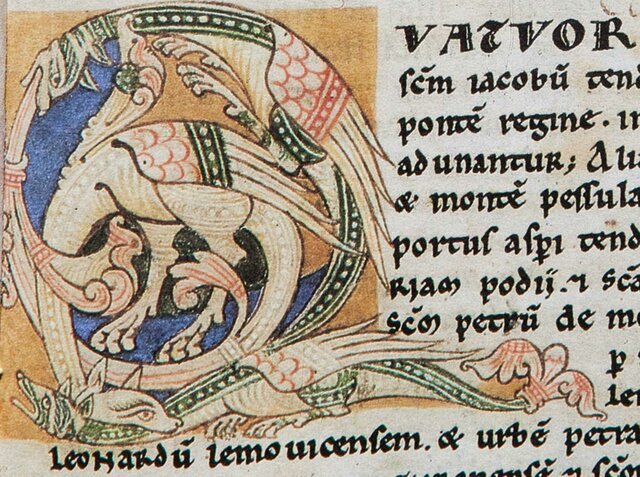 VATVOR
scm̄ iacobū ten
pontē regine. in
adunantur; A lu
& montē pessula
portus asp̄i tend
riam podij. ⁊ scā
scm̄ petrū de mo
p
leonardū lemovicensem. & urbē petra